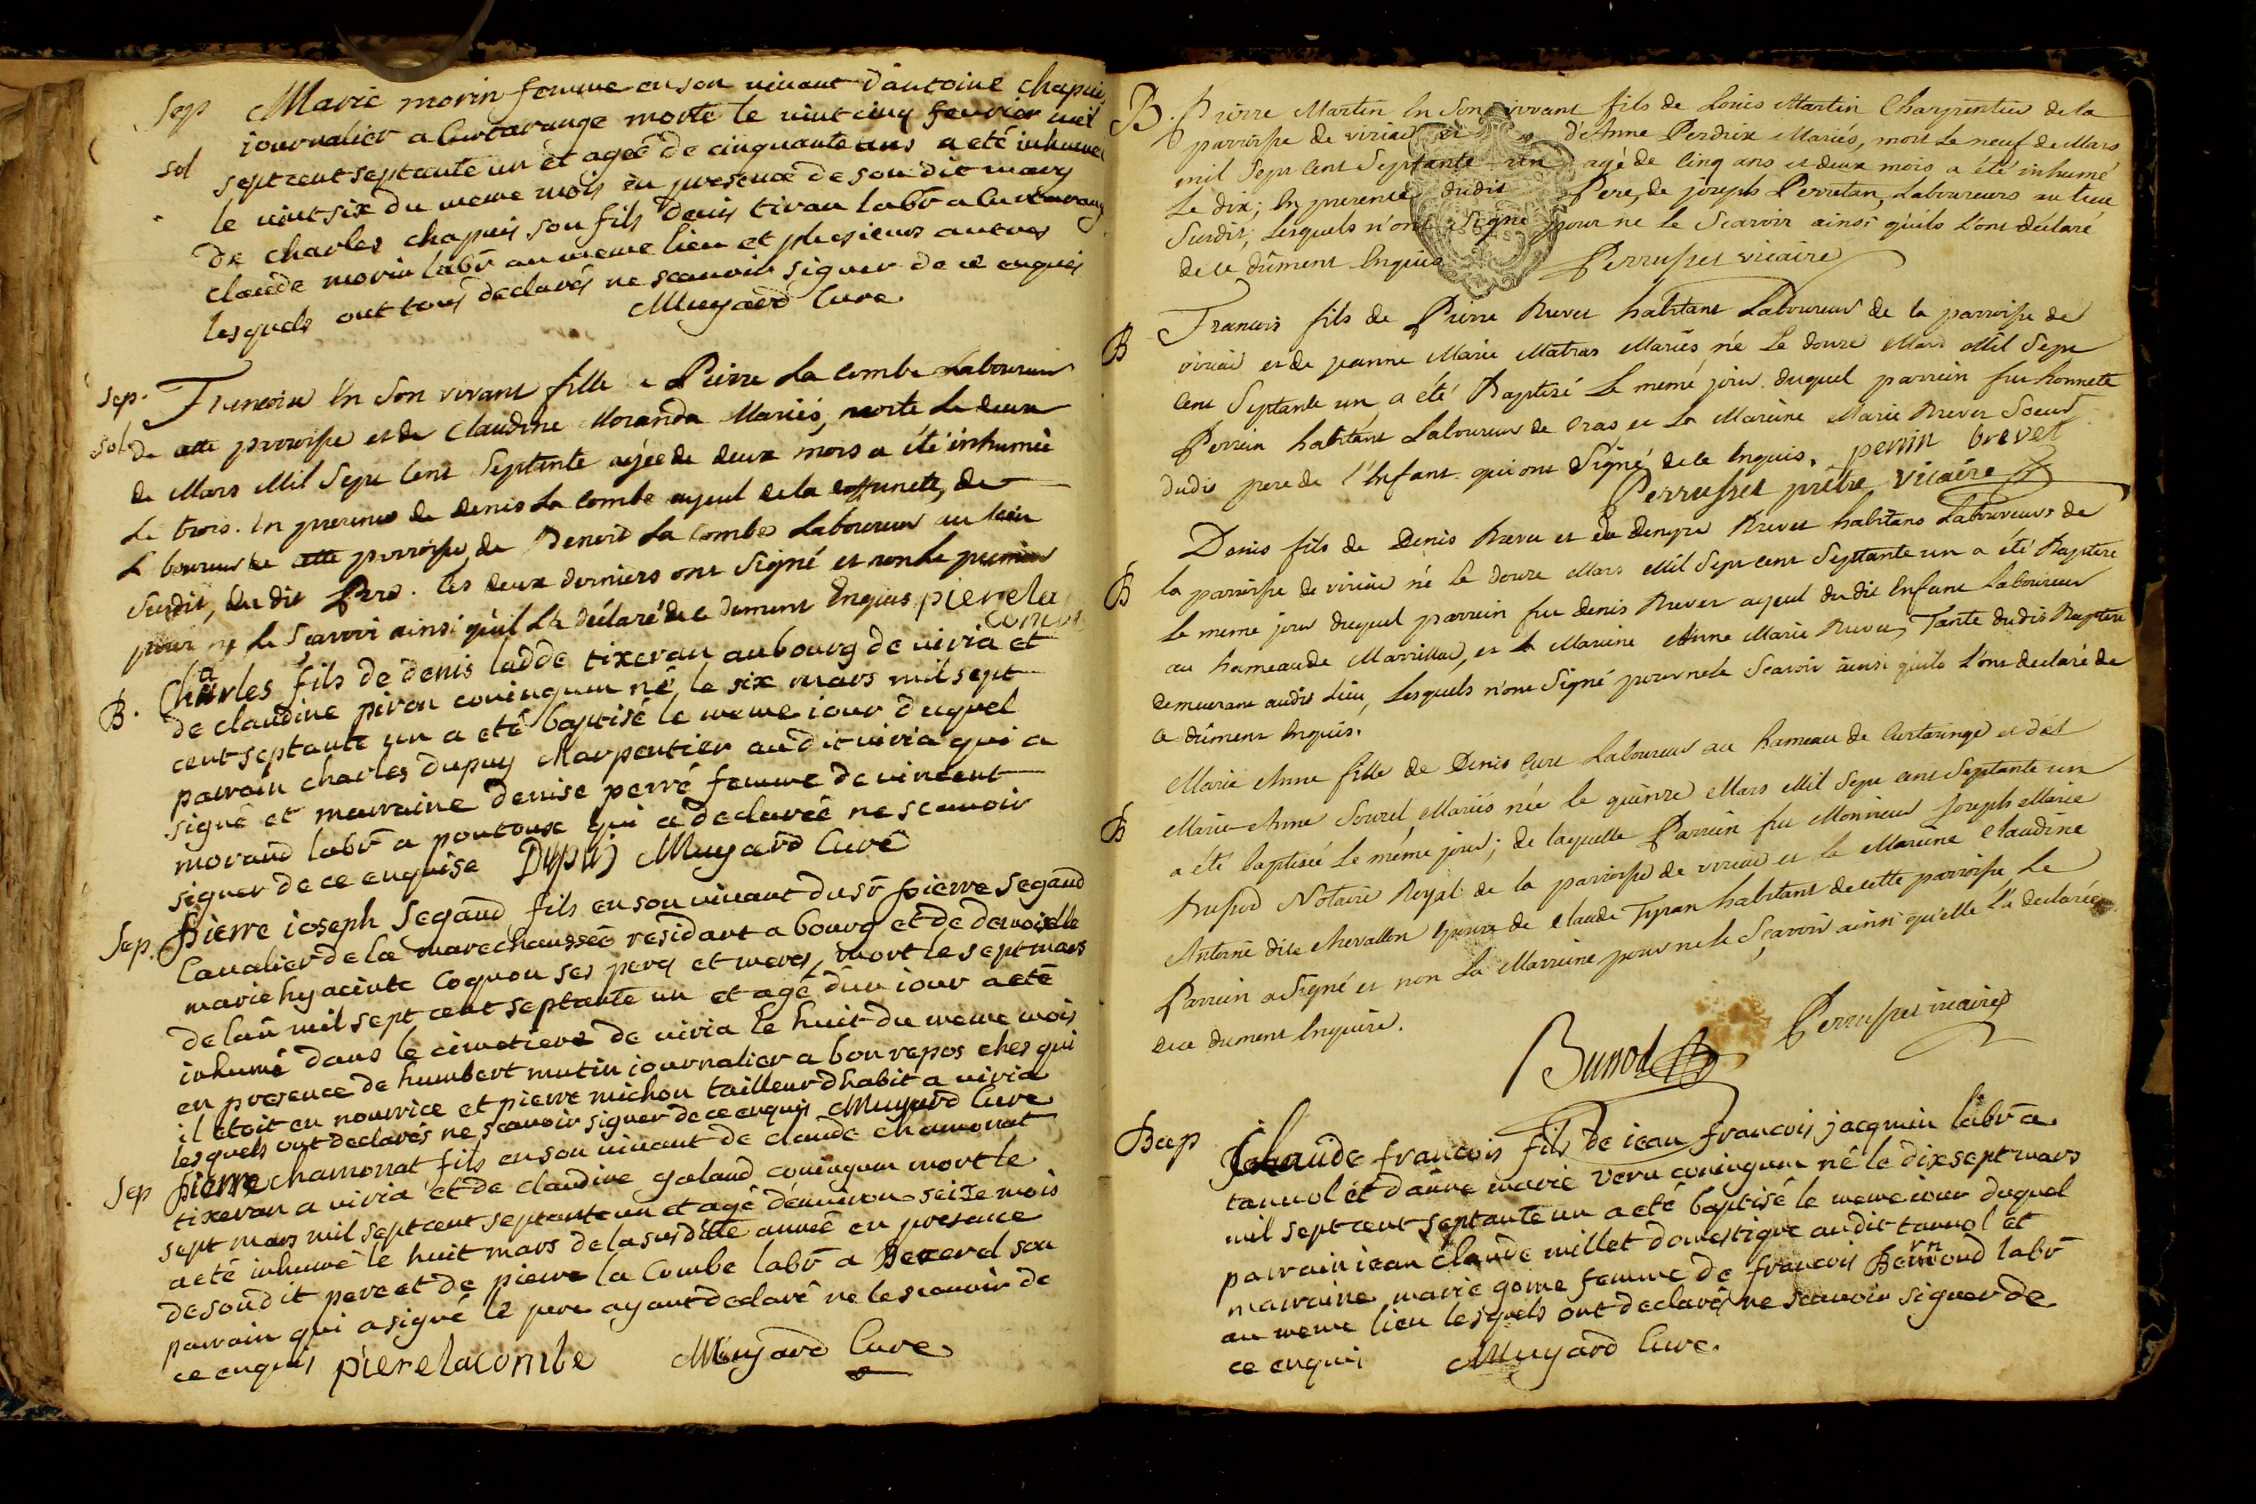 Sep Marie morin femme en son vivant d'antoine chapuis
journalier a Curtarange morte le vint cinq fevrier mil
sol sept cent septante un et agée de cinquante ans a eté inhumée
le vint six du meme mois en presence de son dit mary
de charles chapuis son fils denis tiran labr a Curtarange
claude morin labr au meme lieu et plusieurs autres
lesquels ont tous declarés ne scauoir signer de ce enquis
Muyard Cure
Sep. Francoise En Son vivant fille Pierre La Combe Laboureur
sol de cette parroisse et de Claudine Moranda Mariés, morte Le deux
de Mars Mil Sept Cent Septante agée de deux mois a été inhumée
Le trois. En presence de denis La Combe ayeul de la deffunete, de
L boureur de cette parroisse, de Benoit La Combe Laboureur au lieu
Susdit, du dit Pere. les deux derniers ont Signé et non le premier
pour ne Le Sçavoir ainsi qu'il L'a déclaré de ce dument Enquis pierre la
combe
B. Charles fils de denis ladde tixeran au bourg de viria et
de claudine piron coniugum né le six mars mil sept
cent septante un a eté baptisé le meme iour duquel
parrain charles dupuy charpentier au dit viria qui a
signé et marraine denise perré femme de vincent
morand labr a pontoux qui a declarée ne scauoir
signer de ce enquise Dupuj Muyard Curé
Sep. Pierre ioseph Segaud fils en son vivant du sr pierre Segaud
Caualier de la marechaussée residant a bourg et de demoiselle
marie hyacinte Coquon ses peres et meres, mort le sept mars
de lan mil sept cent septante un et agé d'un iour a eté
inhumé dans le cimetiere de viria le huit du meme mois
en presence de humbert mutin iournalier a bon repos ches qui
il etoit en nourrice et pierre michon tailleur d'habit a viria
lesquels ont declarés ne scauoir signer de ce enquis Muyard Cure
Sep pierre chamonat fils en son vivant de claude chamonat
tixeran a viria et de claudine galand coniugum mort le
sept mars mil sept cent septante un et agé d'enuiron seize mois
a eté inhumé le huit mars de la susditte année en presence
de son dit pere et de pierre la Combe labr a Bexerel son
parrain qui a signé le pere ayant declaré ne le scauoir de
ce enquis pierelacombe Muyard Cure
B. Pierre Martin En Son vivant fils de Louis Martin Charpentier de la
parroisse de viriat et d'Anne Perdrix Mariés, mort Le neuf de Mars
mil Sept Cent Septante un agé de Cinq ans et deux mois a été inhumé
Le dix; En presence dudit Pere, de joseph Perretan, Laboureurs au lieu
Susdit, Lesquels n'ont Signé pour ne le Scavoir ainsi qu'ils L'ont déclaré
de ce dûment Enquis Perrusset vicaire
B Francois fils de Pierre Brevet habitant Laboureur de la parroisse de
viriat et de jeanne Marie Matras Mariés né Le douze Mars Mil Sept
Cent Septante un a été Baptisé Le meme jour duquel parrein fut honnete
Perrin habitant Laboureur de Cras et La Mareine Marie Brevet Soeur
dudit pere de l'Enfant qui ont Signé de ce Enquis. perrin brevet
Perrusset prêtre vicaire
B Denis fils de Denis Brevet et de denyse Brevet habitans Laboureurs de
la parroisse de viriat né Le douze Mars Mil Sept cent Septante un a été Baptisé
Le meme jour duquel parrein fut denis Brevet ayeul du dit Enfant Laboureur
au hameau de Marrillat, et la Mareine Anne Marie Brevet, Tante dudit Baptisé
demeurant audit Lieu, Lesquels n'ont Signé pour ne le Scavoir ainsi qu'ils L'ont declaré de
ce dûment Enquis.
B Marie Anne fille de Denis Curt Laboureur au hameau de Curtaringe et de
Marie Anne Sourd Mariés née le quinze Mars Mil Sept cent Septante un
a été baptisée Le même jour; de laquelle Parrein fut Monsieur Joseph Marie
Notaire Royal de la parroisse de viriat et la Mareine Claudine
Antoine dite Chevallon Epouse de Claude Tyran habitant de cette parroisse Le
Parrein a Signé et non La Marreine pour ne le Sçavoir ainsi qu'elle L'a declarée
de ce dument Enquise.
Bunod Perrusset vicaire
Bap Claude francois fils de iean francois jacquin labr a
tannol et d'anne marie veru coniugum né le dix sept mars
mil sept cent septante un a eté baptisé le meme iour duquel
parrain iean claude millet domestique au dit tannol et
marraine marie gome femme de francois Bernoud labr
au meme lieu lesquels ont declarés ne scauoir signer de
ce enquis Muyard Cure.